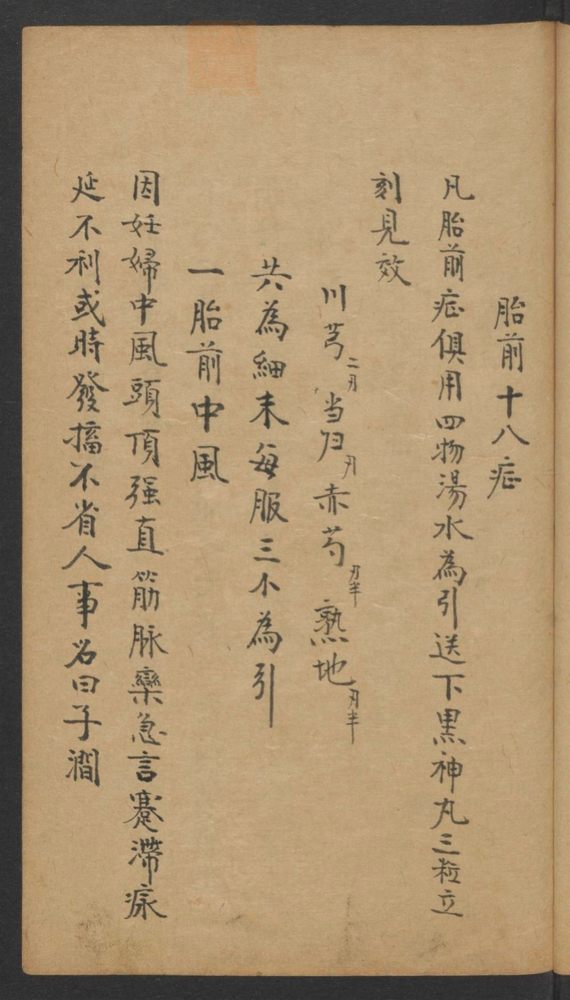 胎前十八症
凡胎前症俱用四物湯水為引送下黑神丸三粒立
刻見效
川芎 当归 赤芍 熟地
共為細末每服三小為引
一胎前中風
因妊婦中風頭項强直筋脉攣急言蹇滯痰
延不利或時發搐不省人事名曰子澗